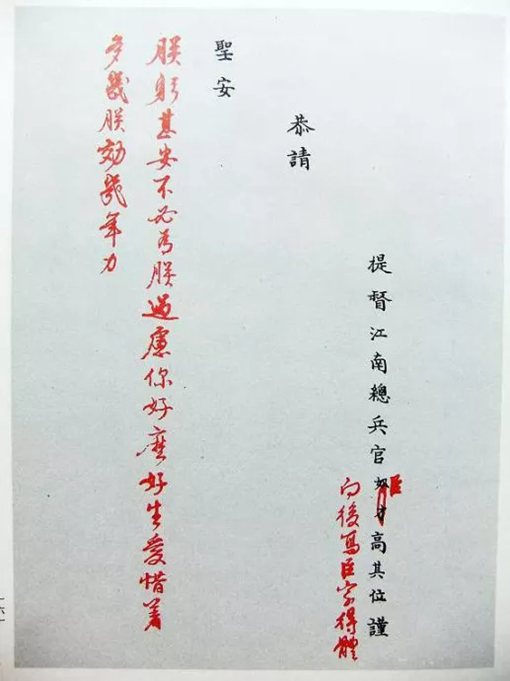 提督江南總兵官奴才高其位謹
臣
向後寫臣字得體
恭請
聖安
朕躬甚安不必為朕過慮你好麽好生愛惜着
多幾朕効幾年力
一六一